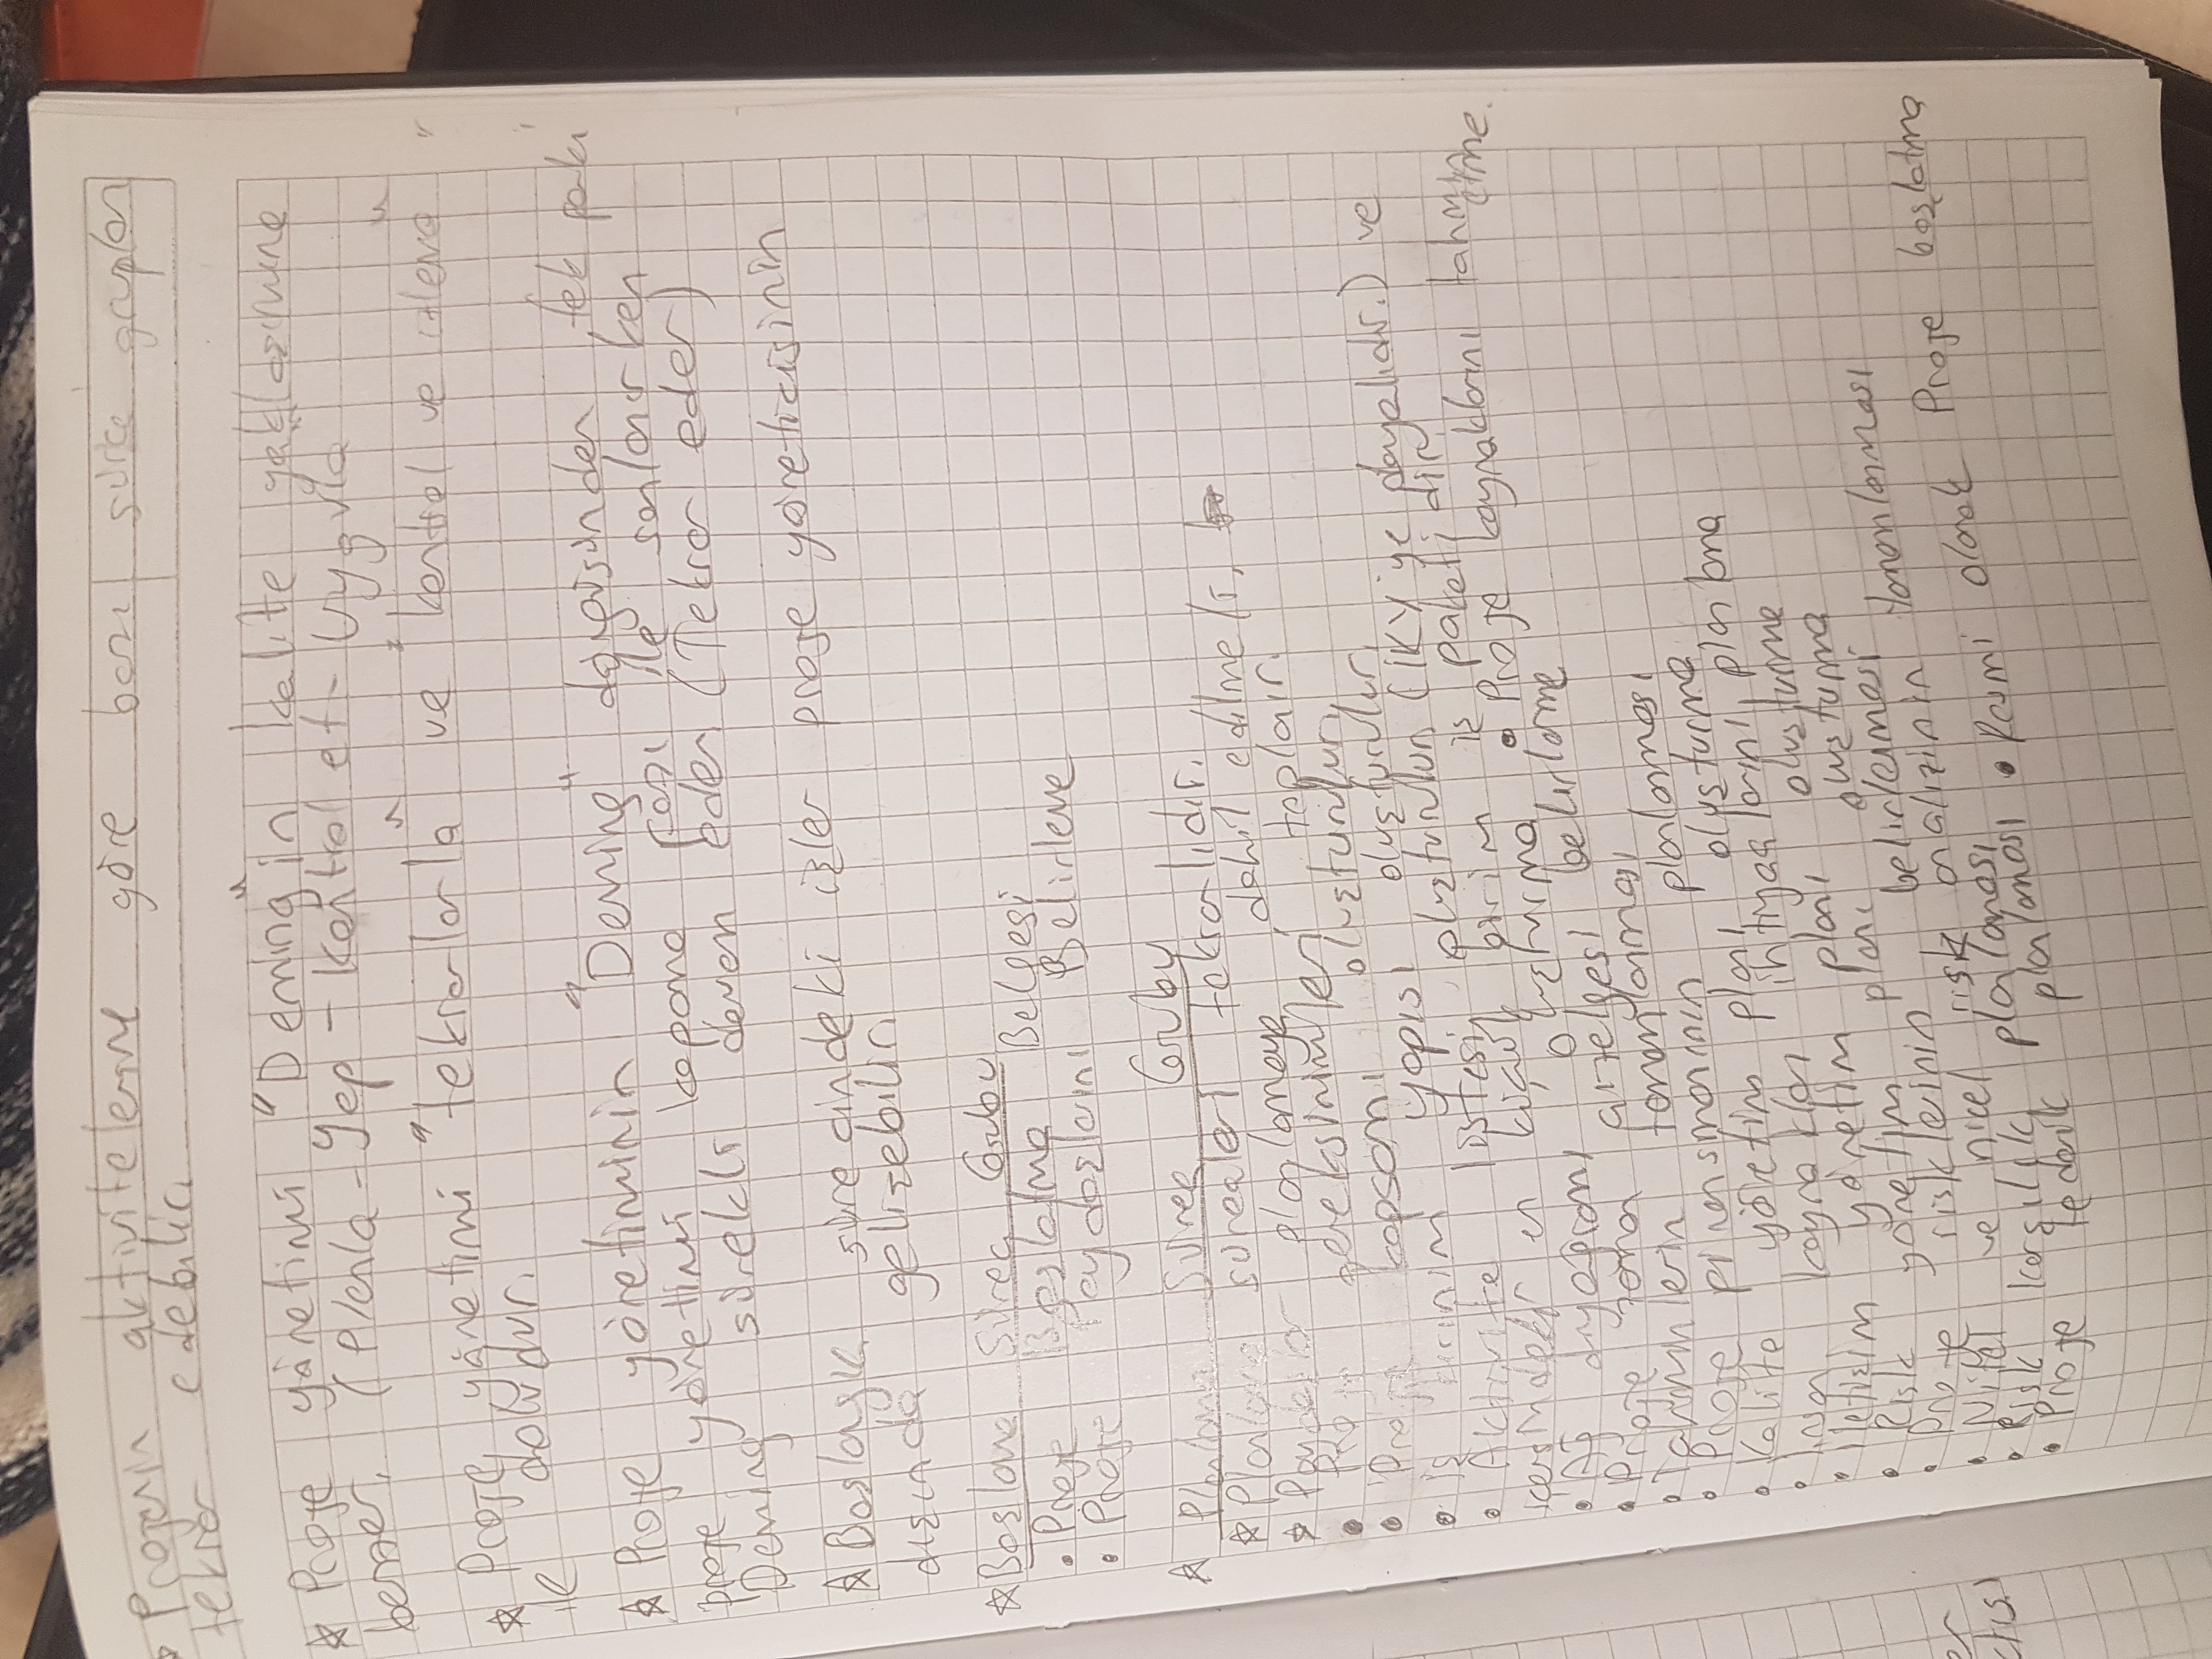 Projenin aktivitelerine göre bazı süreç grupları
tekrar edebilir.
☆ Proje yönetimi "Deming"in kalite yaklaşımına
benzer. (Planla - Yap - Kontrol et - Uygula
☆ Proje yönetimi "tekrarlarla" ve "kontrol ve izleme"
ile doludur.
☆ Proje yönetiminin "Deming" döngüsünden tek farkı
proje yönetimi kapama fazı ile sonlanırken
Deming sürekli devam eder (Tekrar eder)
☆ Başlangıç sürecindeki işler proje yöneticisinin
dışında gelişebilir.
☆ Başlama Süreç Grubu
• Proje Başlatma Belgesi
• Proje Paydaşlarını Belirleme
☆ Planlama Süreç Grubu
☆ Planlama süreçleri tekrarlıdır.
☆ Paydaşlar planlamaya dahil edilmeli.
• Proje gereksinimleri toplanır.
• Proje kapsamı oluşturulur.
• İş kırınım yapısı oluşturulur.
• Aktivite listesi oluşturulur (İKY'ye dayalıdır.) ve
içersindeki en küçük birim iş paketidir.
• Ağ diyagramı oluşturma • Proje kaynaklarını tahmin etme.
• Proje zaman çizelgesi belirleme
• Tahminlerin tamamlanması
• Proje finansmanının planlanması
• Kalite yönetim planı oluşturma
• İnsan kaynakları ihtiyaçlarını planlama
• İletişim yönetim planı oluşturma
• Risk yönetim planı oluşturma
• Proje risklerinin belirlenmesi
• Nitel ve nicel risk analizinin tamamlanması
• Risk karşılık planlaması
• Proje tedarik planlaması • Resmi olarak Proje başlatma